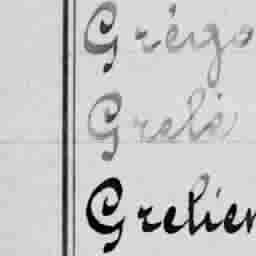 Grérgo
Grelé
Grelier